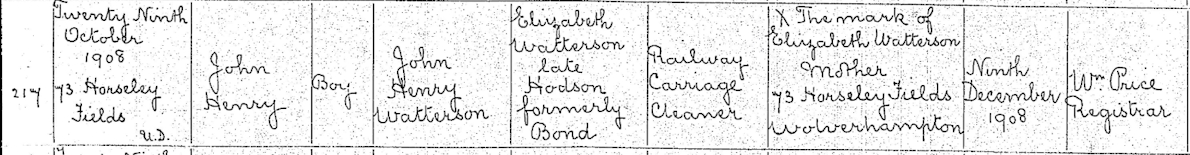 217
Twenty Ninth
October
1908
73 Horseley
Fields
U.D.
John
Henry
Boy
John
Henry
Watterson
Elizabeth
Watterson
late
Hodson
formerly
Bond
Railway
Carriage
Cleaner
X The mark of
Elizabeth Watterson
Mother
73 Horseley Fields
Wolverhampton
Ninth
December
1908
Wm Price
Registrar